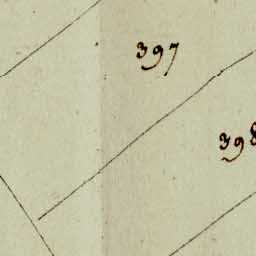 397
398